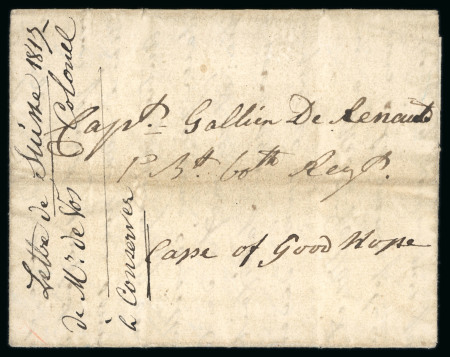 Capt. Gallien De Renaud
1st Bt. 60th Regt.
Cape of Good Hope
Lettre de Suisse 1815
de Mr. de Vos Colonel
à Conserver